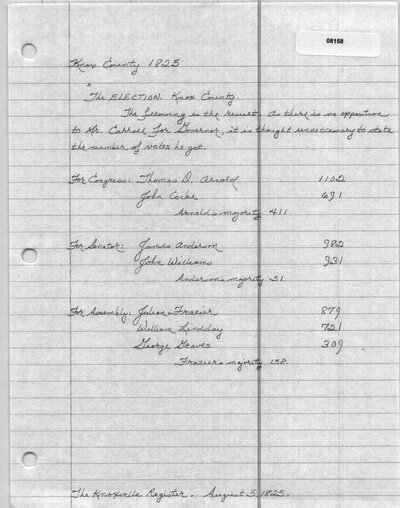 08158
Knox County 1825
"The ELECTION. Knox County.
The following is the result. As there is no opposition
to Mr. Carroll for Governor, it is thought unnecessary to state
the number of votes he got.
For Congress: Thomas D. Arnold 1102
John Cocke 691
Arnold's majority 411
For Senator: James Anderson 982
John Williams 931
Anderson's majority 51
For Assembly: Julian Frazier 879
William Lindsay 721
George Graves 309 "
Frazier's majority 158
The Knoxville Register. August 5, 1825.